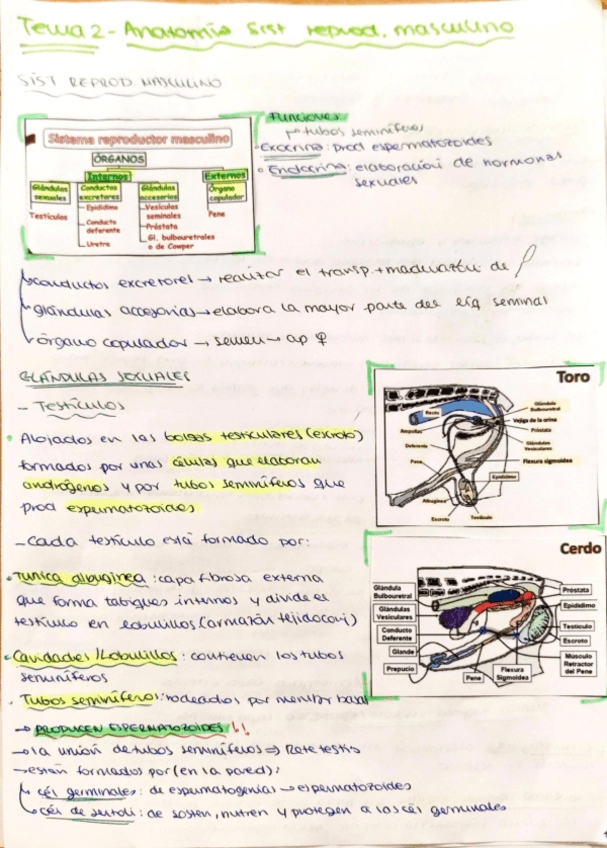 Tema 2 - Anatomía Sist reprod. masculino
SIST REPROD. MASCULINO
Sistema reproductor masculino
ÓRGANOS
Internos
Externos
Glándulas sexuales
Conductos excretores
Glándulas accesorias
Órgano copulador
Testículos
Epidídimo
Conducto deferente
Uretra
Vesículas seminales
Próstata
Gl. bulbouretrales o de Cowper
Pene
Funciones:
tubos seminíferos
Exocrina: prod espermatozoides
Endocrina: elaboración de hormonas
sexuales
conductos excretores → realizar el transp. + maduración de
glándulas accesorias → elabora la mayor parte del líq seminal
órgano copulador → semen → ap ♀
GLÁNDULAS SEXUALES
- Testículos
Alojados en las bolsas testiculares (escroto)
formados por unas células que elaboran
andrógenos y por tubos seminíferos que
prod espermatozoides
- Cada testículo está formado por:
Tunica albuginea: capa fibrosa externa
que forma tabiques internos y divide el
testículo en lobulillos (armazón tejidoconj)
Cavidades/Lobulillos: contienen los tubos
seminíferos
Tubos seminíferos: rodeados por membr basal
→ PRODUCEN ESPERMATOZOIDES !!
→ la unión de tubos seminíferos ⇒ Rete testis
→ están formados por (en la pared):
cél germinales: de espermatogenias → espermatozoides
cél de sertoli: de sosten, nutren y protegen a las cél germinales
Toro
Recto
Glándula Bulbouretral
Vejiga de la orina
Próstata
Ampollas
Glándulas Vesiculares
Deferente
Flexura sigmoidea
Pene
Epidídimo
Albugínea
Escroto
Testículo
Cerdo
Glándula Bulbouretral
Glándulas Vesiculares
Conducto Deferente
Glande
Prepucio
Pene
Flexura Sigmoidea
Próstata
Epidídimo
Testículo
Escroto
Músculo Retractor del Pene
1